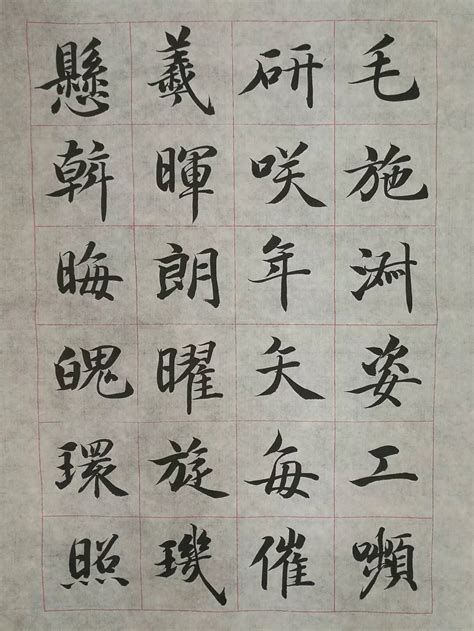 毛施淑姿工嚬
研咲年矢每催
羲暉朗曜旋璣
懸斡晦魄環照